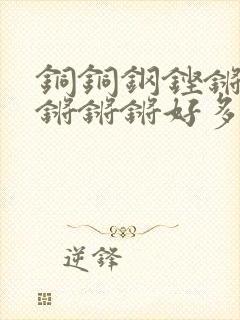 銅銅鋼鏗鏘
鏘鏘鏘好多
逆鋒